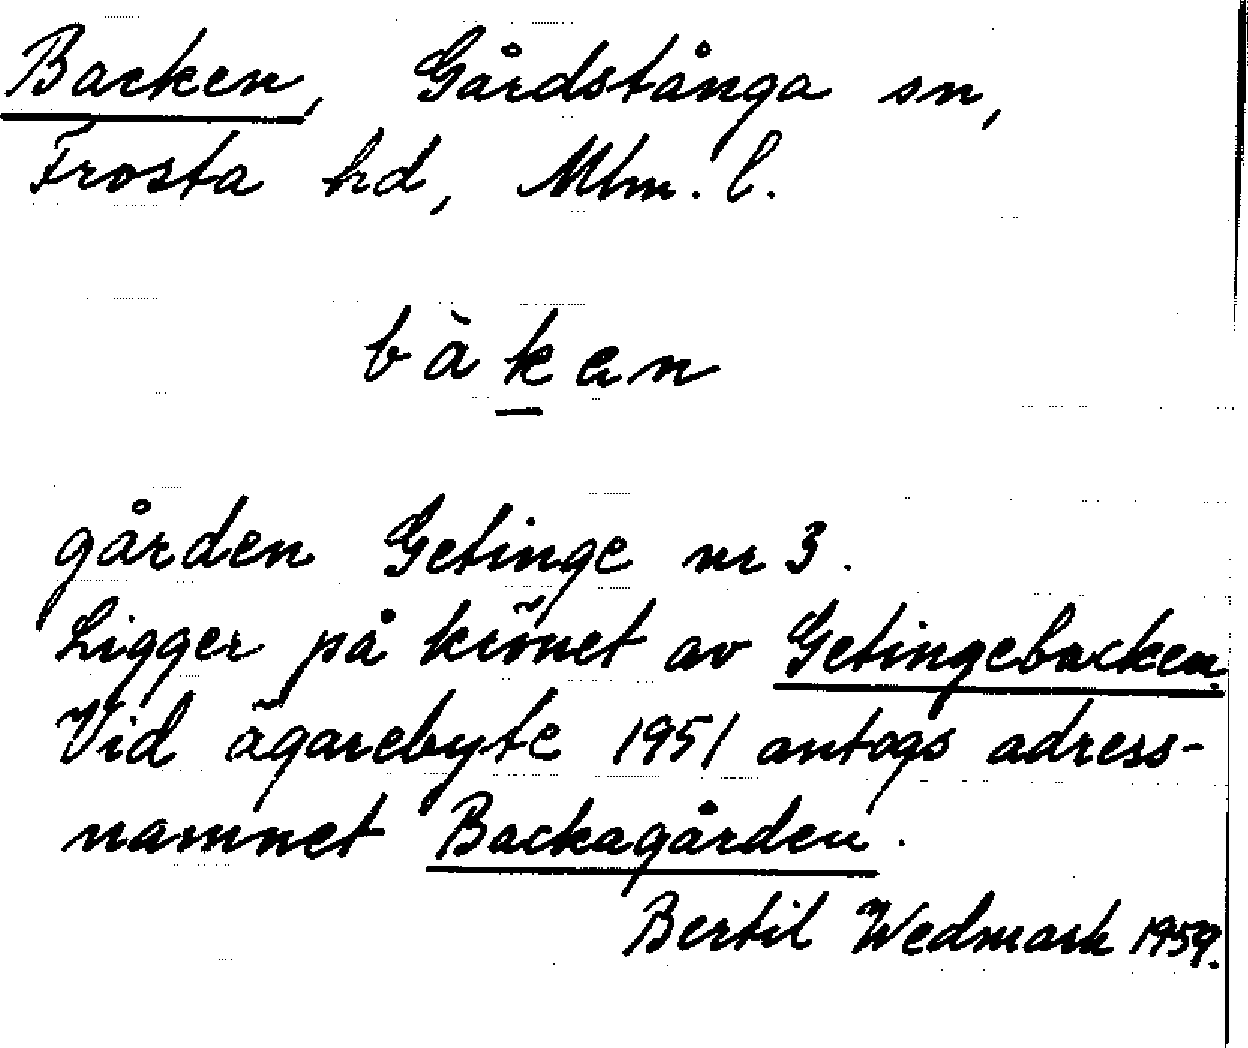 Backen, Gårdstånga sn,
Frosta hd, Mlm. l.
bàkan
gården Getinge nr 3.
Ligger på krönet av Getingebacken.
Vid ägarebyte 1951 antogs adress-
namnet Backagården.
Bertil Wedmark 1959.